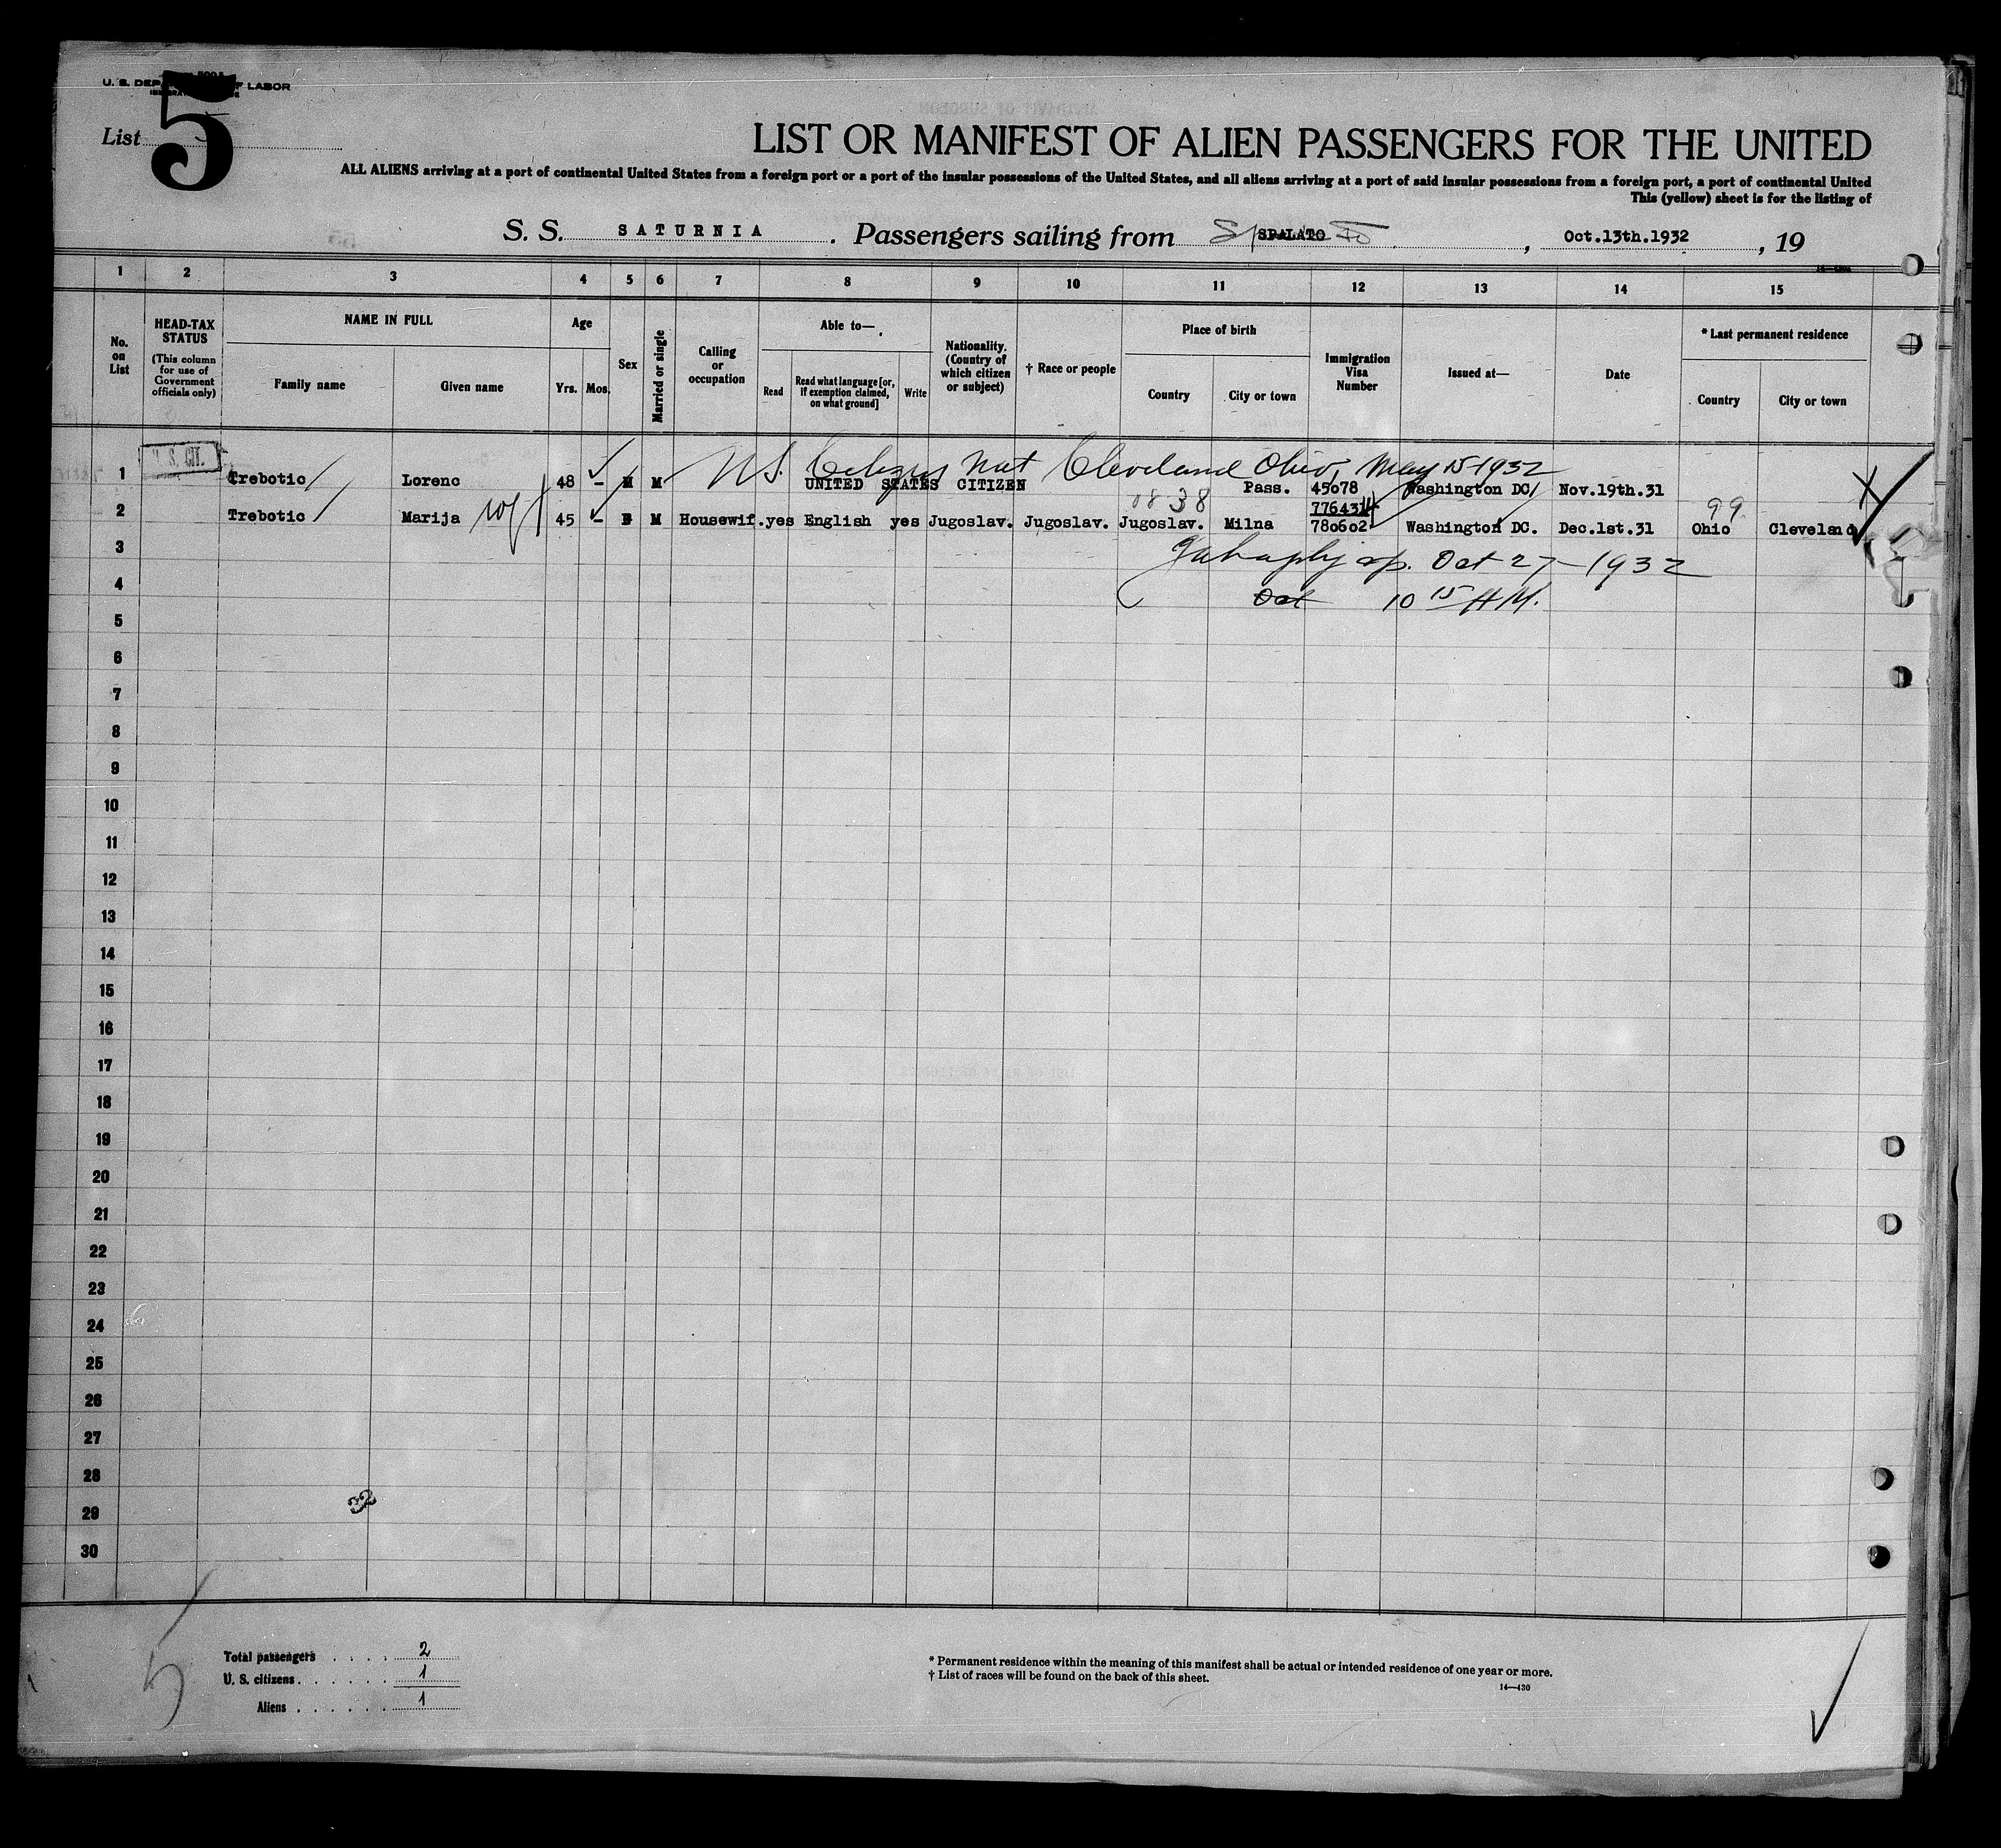 U. S. DEP F LABOR
List 5
LIST OR MANIFEST OF ALIEN PASSENGERS FOR THE UNITED
ALL ALIENS arriving at a port of continental United States from a foreign port or a port of the insular possessions of the United States, and all aliens arriving at a port of said insular possessions from a foreign port, a port of continental United
This (yellow) sheet is for the listing of
S. S. SATURNIA. Passengers sailing from SPALATO, Oct.13th.1932, 19
1 2 3 4 5 6 7 8 9 10 11 12 13 14 15
No. on List
HEAD-TAX STATUS
(This column for use of Government officials only)
NAME IN FULL
Family name
Given name
Age
Yrs. Mos.
Sex
Married or single
Calling or occupation
Able to—
Read
Read what language [or, if exemption claimed, on what ground]
Write
Nationality. (Country of which citizen or subject)
† Race or people
Place of birth
Country
City or town
Immigration Visa Number
Issued at—
Date
* Last permanent residence
Country
City or town
U. S. CIT.
US. Citizen Nat Cleveland Ohio, May 15-1932
1 Trebotic Lorenc 48 - M M UNITED STATES CITIZEN Pass. 45078 Washington DC Nov.19th.31
38 776431 99
2 Trebotic Marija 45 - F M Housewif. yes English yes Jugoslav. Jugoslav. Jugoslav. Milna 780602 Washington DC. Dec.1st.31 Ohio Cleveland
3
Oct 27-1932
4
Oct 10 15 AM.
5
6
7
8
9
10
11
12
13
14
15
16
17
18
19
20
21
22
23
24
25
26
27
28
29
30
Total passengers . . . . 2
U. S. citizens . . . . . . 1
Aliens . . . . . . 1
* Permanent residence within the meaning of this manifest shall be actual or intended residence of one year or more.
† List of races will be found on the back of this sheet.
14—430